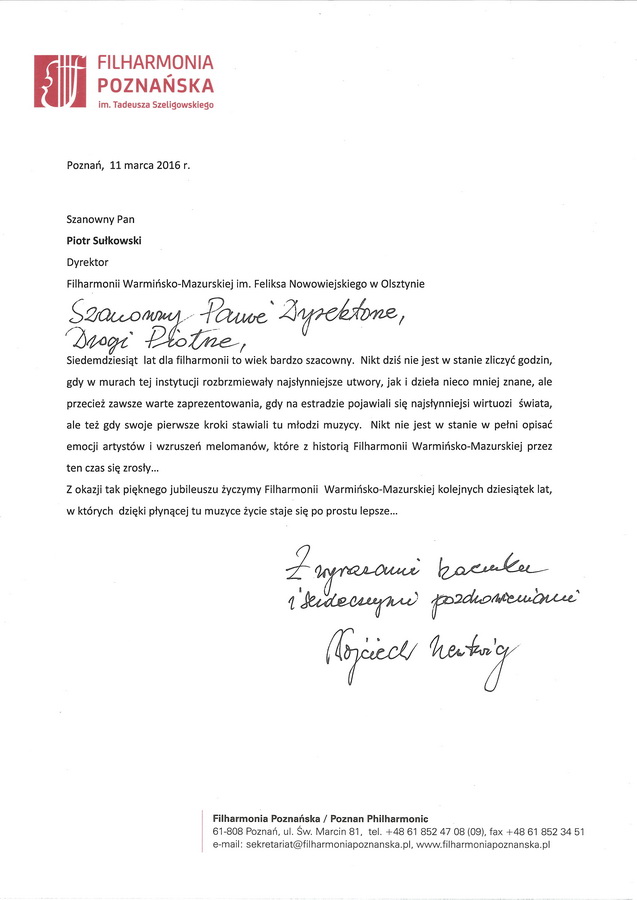 FILHARMONIA
POZNAŃSKA
im. Tadeusza Szeligowskiego
Poznań, 11 marca 2016 r.
Szanowny Pan
Piotr Sułkowski
Dyrektor
Filharmonii Warmińsko-Mazurskiej im. Feliksa Nowowiejskiego w Olsztynie
Szanowny Panie Dyrektorze,
Drogi Piotrze,
Siedemdziesiąt lat dla filharmonii to wiek bardzo szacowny. Nikt dziś nie jest w stanie zliczyć godzin,
gdy w murach tej instytucji rozbrzmiewały najsłynniejsze utwory, jak i dzieła nieco mniej znane, ale
przecież zawsze warte zaprezentowania, gdy na estradzie pojawiali się najsłynniejsi wirtuozi świata,
ale też gdy swoje pierwsze kroki stawiali tu młodzi muzycy. Nikt nie jest w stanie w pełni opisać
emocji artystów i wzruszeń melomanów, które z historią Filharmonii Warmińsko-Mazurskiej przez
ten czas się zrosły…
Z okazji tak pięknego jubileuszu życzymy Filharmonii Warmińsko-Mazurskiej kolejnych dziesiątek lat,
w których dzięki płynącej tu muzyce życie staje się po prostu lepsze…
Z wyrazami szacunku
i serdecznymi pozdrowieniami
Wojciech Nentwig
Filharmonia Poznańska / Poznan Philharmonic
61-808 Poznań, ul. Św. Marcin 81, tel. +48 61 852 47 08 (09), fax +48 61 852 34 51
e-mail: sekretariat@filharmoniapoznanska.pl, www.filharmoniapoznanska.pl